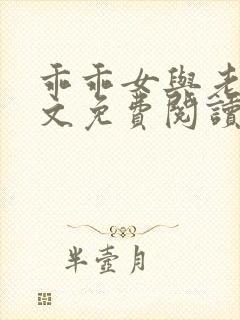 乖乖女與老
文免費閱讀
半壺月